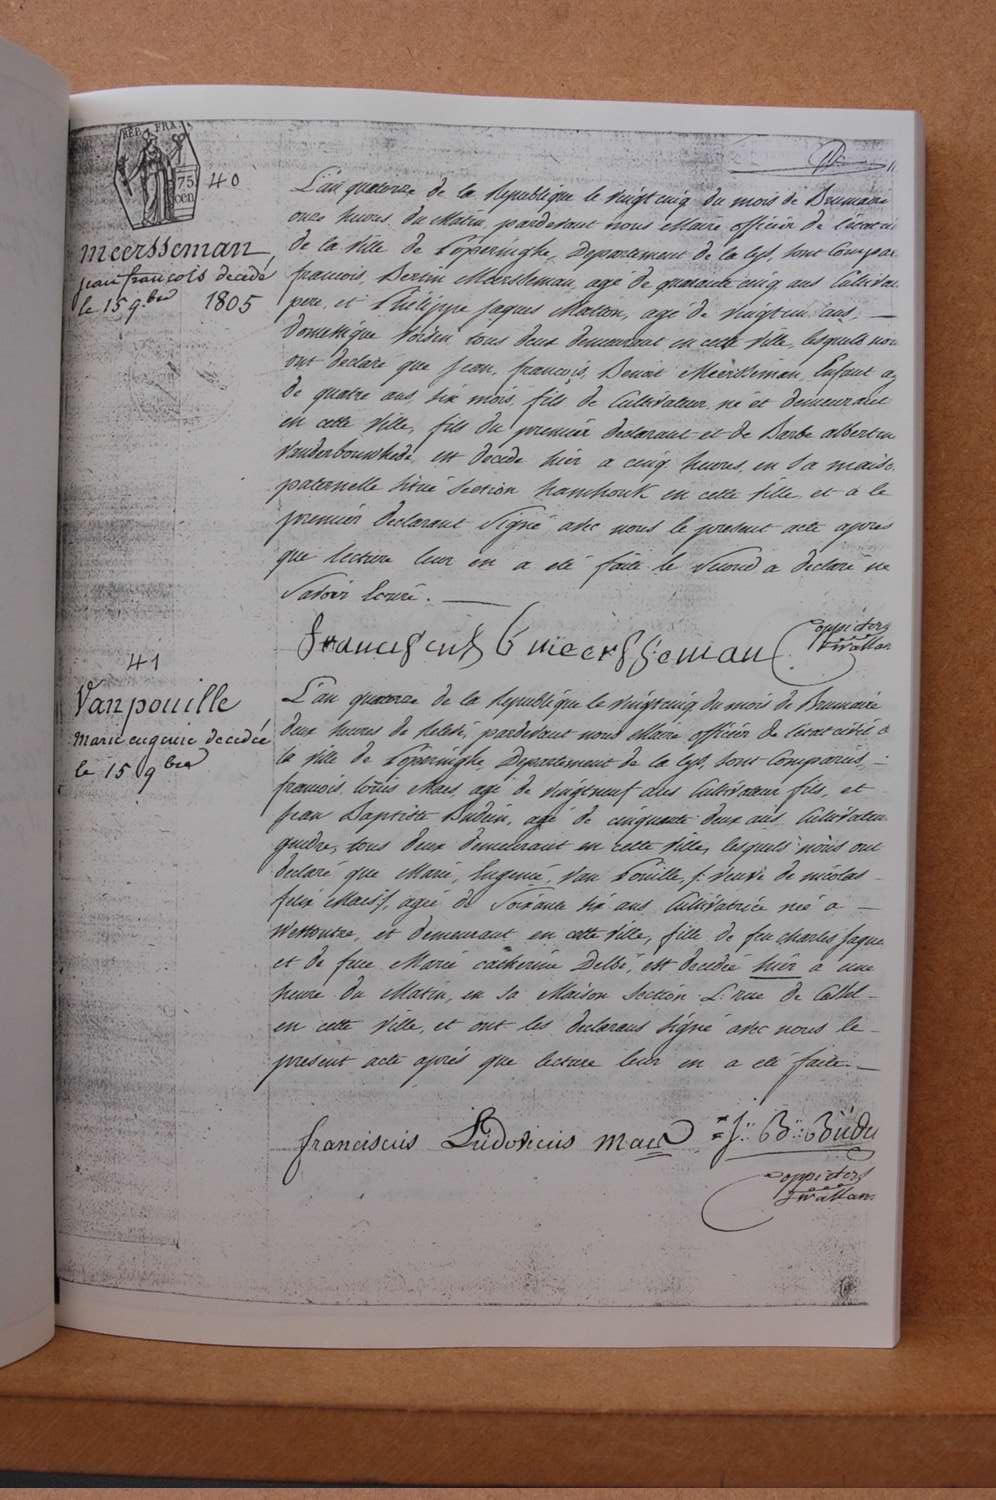 REP. FRA.
75
cen
40
Meersseman,
jean francois decedé
le 15 9bre 1805
L'an quatorze de la Republique le vingtcinq du mois de Brumaire
onze heures du Matin, pardevant nous Maire officier de l'état ci
de la ville de Poperinghe, Departement de la Lys, sont Compar
francois, Bertin Meersseman, agé de quarante cinq ans Cultivat
pere, et Philippe Jaques Matton, agé de vingtun ans,
Dometique Voisin tous deux demeurant en cette ville, lesquels nou
ont declaré que Jean, francois, Benoit Meersseman, Enfant a
de quatre ans, six mois, fils de Cultivateur, né et demeurant
en cette ville, fils du premier declarant et de Barbe albertin
Vanderbouwhede, est decedé hier a cinq heures, en sa maiso
paternelle situé section hamhouk en cette ville, et a le
premier declarant signé avec nous le present acte apres
que lecture leur en a eté faite le second a declaré ne
savoir Ecrire.
Meersseman
41
Vanpouille
Marie eugenie decedée
le 15 9bre
L'an quatorze de la Republique le vingtcinq du mois de Brumaire
deux heures de Relevé, pardevant nous Maire officier de l'état civil d
la ville de Poperinghe, Departement de la Lys, sont Comparus,
francois, Louis Maes, agé de vingtneuf ans Cultivateur fils, et
Jean Baptiste Budin, agé de cinquante deux ans Cultivateu
gendre, tous deux demeurant en cette ville, lesquels nous ont
declaré que Marie, Eugenie, Van Pouille, veuve de nicolas
felix Maes, agée de soixante six ans Cultivatrice née a
Westoutre, et demeurant en cette ville, fille de feu charles Jaque
et de feue Marie catherine Delbé, est decedée hier a une
heure du Matin, en sa Maison section L: rue de Cassel
en cette ville, et ont les declarans signé avec nous le
present acte aprés que lecture leur en a eté faite.
franciscus Ludovicus Maes J: B: Budi